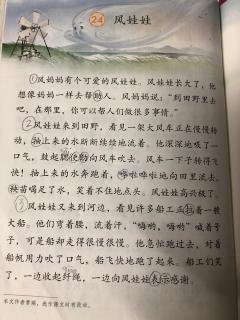 24 风娃娃
①风妈妈有个可爱的风娃娃。风娃娃长大了，他
想像妈妈一样去帮助人。风妈妈说：“到田野里去
吧，在那里，你可以帮人们做很多事情。”
②风娃娃来到田野，看见一架大风车正在慢慢转
动，抽上来的水断断续续地流着。他深深地吸了一
口气，鼓起腮使劲向风车吹去。风车一下子转得飞
快！抽上来的水奔跑着，哗啦哗啦地向田里流去。
秧苗喝足了水，笑着不住地点头。风娃娃高兴极了。
③风娃娃又来到河边，看见许多船工正拉着一艘
大船。他们弯着腰，流着汗，“嗨哟，嗨哟”喊着号
子，可是船却走得很慢很慢。他急忙跑过去，对着
船帆用力吹了口气。船飞快地跑了起来。船工们笑
了，一边收起纤绳，一边向风娃娃表示感谢。
本文作者曹瑜，选作课文时有改动。